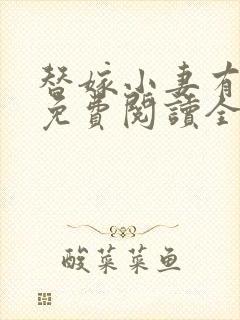 替嫁小妻有
免費閱讀全
酸菜菜鱼